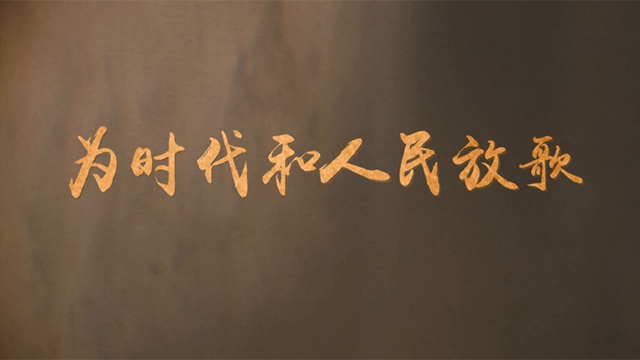 为时代和人民放歌